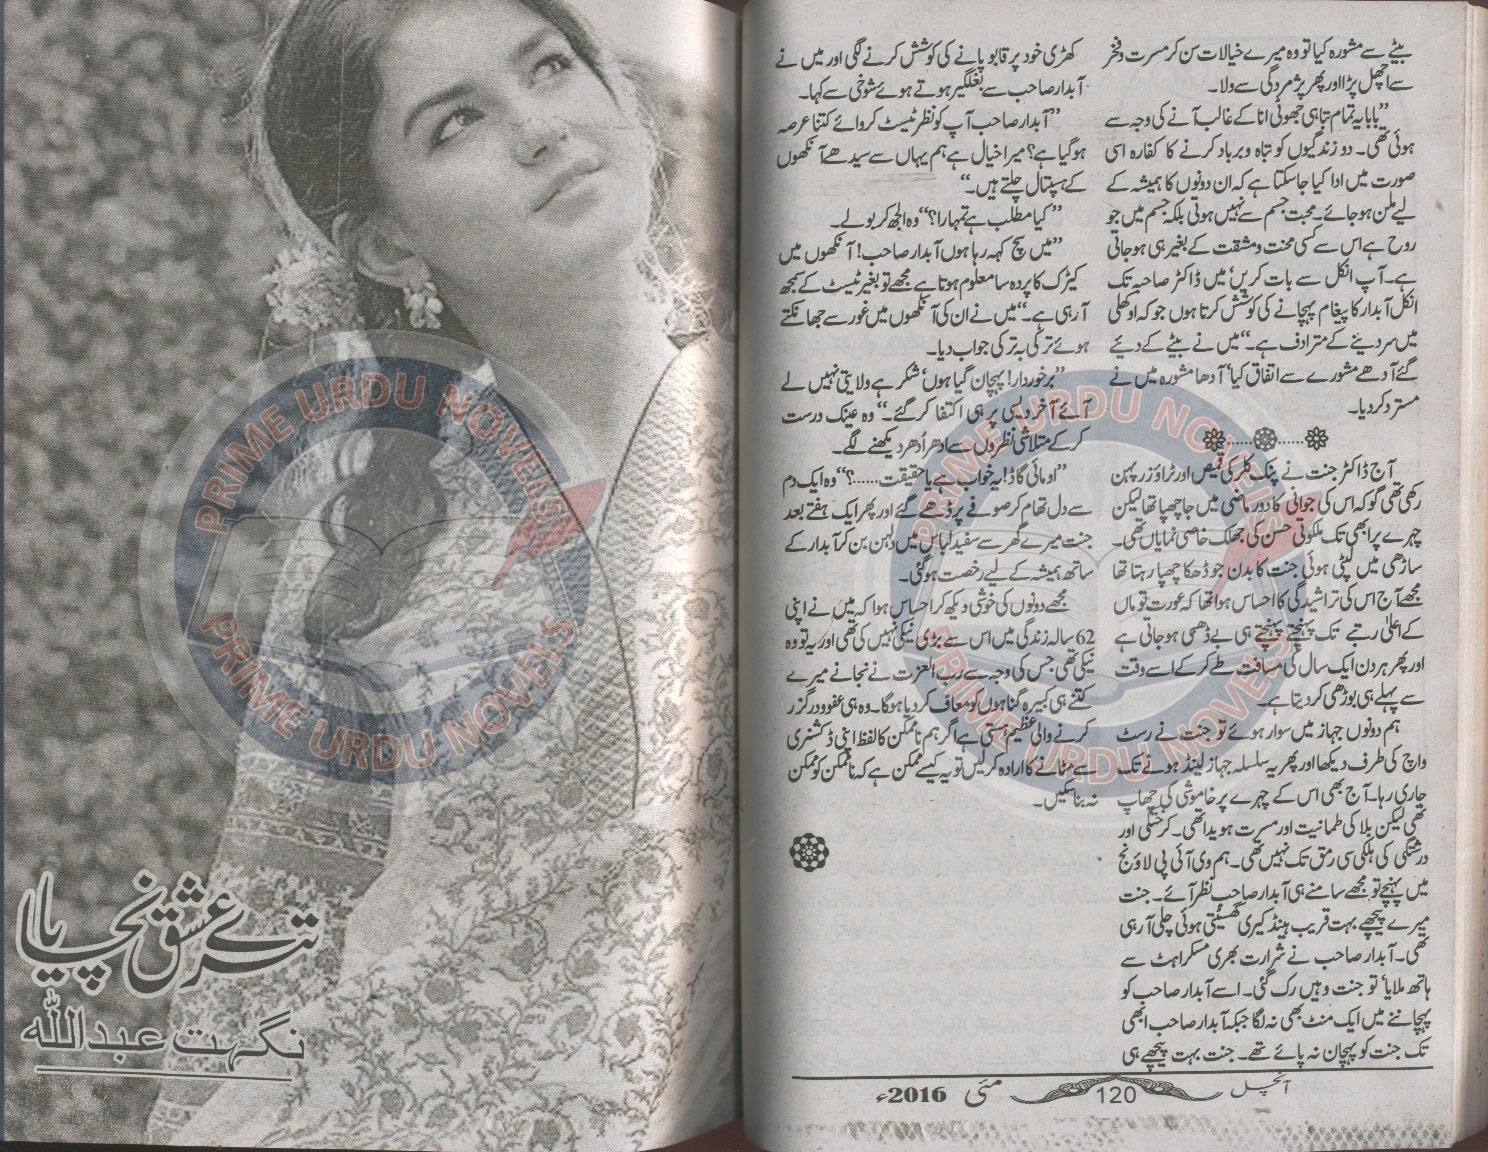 بیٹے سے مشورہ کیا تو وہ میرے خیالات سن کر مسرت و فخر
سے اچھل پڑا اور پھر پژمردگی سے ولا۔
”بابا یہ تمام تباہی جھوٹی انا کے غالب آنے کی وجہ سے
ہوئی تھی۔ دو زندگیوں کو تباہ و برباد کرنے کا کفارہ اسی
صورت میں ادا کیا جاسکتا ہے کہ ان دونوں کا ہمیشہ کے
لیے ملن ہو جائے۔ محبت جسم سے نہیں ہوتی بلکہ جسم میں جو
روح ہے اس سے کسی محنت و مشقت کے بغیر ہی ہو جاتی
ہے۔ آپ انکل سے بات کریں‘ میں ڈاکٹر صاحبہ تک
انکل آبدار کا پیغام پہچانے کی کوشش کرتا ہوں جو کہ اوکھلی
میں سر دینے کے مترادف ہے۔“ میں نے بیٹے کے دیئے
گئے آدھے مشورے سے اتفاق کیا‘ آدھا مشورہ میں نے
مسترد کردیا۔
آج ڈاکٹر جنت نے پنک کلر کی قمیص اور ٹراؤزر پہن
رکھی تھی گو کہ اس کی جوانی کا دور ماضی میں جا چھپا تھا لیکن
چہرے پر ابھی تک ملکوتی حسن کی جھلک خاصی نمایاں تھی۔
ساڑھی میں لپٹی ہوئی جنت کا بدن جو ڈھکا چھپا رہتا تھا
مجھے آج اس کی تراشیدگی کا احساس ہوا تھا کہ عورت تو ماں
کے اعلیٰ رتبے تک پہنچتے پہنچتے ہی بے ڈھبی ہو جاتی ہے
اور پھر ہر دن ایک سال کی مسافت طے کرکے اسے وقت
سے پہلے ہی بوڑھی کر دیتا ہے۔
ہم دونوں جہاز میں سوار ہوئے تو جنت نے رسٹ
واچ کی طرف دیکھا اور پھر یہ سلسلہ جہاز لینڈ ہونے تک
جاری رہا۔ آج بھی اس کے چہرے پر خاموشی کی چھاپ
تھی لیکن بلا کی طمانیت اور مسرت ہویدا تھی۔ کرختگی اور
درشتگی کی ہلکی سی رمق تک نہیں تھی۔ ہم وی آئی پی لاؤنج
میں پہنچے تو مجھے سامنے ہی آبدار صاحب نظر آئے۔ جنت
میرے پیچھے بہت قریب ہینڈ کیری گھسیٹتی ہوئی چلی آرہی
تھی۔ آبدار صاحب نے شرارت بھری مسکراہٹ سے
ہاتھ ملایا‘ تو جنت وہیں رک گئی۔ اسے آبدار صاحب کو
پہچاننے میں ایک منٹ بھی نہ لگا جبکہ آبدار صاحب ابھی
تک جنت کو پہچان نہ پائے تھے۔ جنت بہت پیچھے ہی
کھڑی خود پر قابو پانے کی کوشش کرنے لگی اور میں نے
آبدار صاحب سے بغلگیر ہوتے ہوئے شوخی سے کہا۔
”آبدار صاحب آپ کو نظر ٹیسٹ کروائے کتنا عرصہ
ہو گیا ہے؟ میرا خیال ہے ہم یہاں سے سیدھے آنکھوں
کے ہسپتال چلتے ہیں۔“
”کیا مطلب ہے تمہارا؟“ وہ الجھ کر بولے۔
”میں سچ کہہ رہا ہوں آبدار صاحب! آنکھوں میں
کیٹرک کا پردہ سا معلوم ہوتا ہے مجھے تو بغیر ٹیسٹ کے سمجھ
آرہی ہے۔“ میں نے ان کی آنکھوں میں غور سے جھانکتے
ہوئے ترکی بہ ترکی جواب دیا۔
”برخوردار! پہچان گیا ہوں‘ شکر ہے ولایتی نہیں لے
آئے آخر دیسی پر ہی اکتفا کر گئے۔“ وہ عینک درست
کرکے متلاشی نظروں سے ادھر اُدھر دیکھنے لگے۔
”او مائی گاڈ! یہ خواب ہے یا حقیقت......؟“ وہ ایک دم
سے دل تھام کر صوفے پر ڈھے گئے اور پھر ایک ہفتے بعد
جنت میرے گھر سے سفید لباس میں دلہن بن کر آبدار کے
ساتھ ہمیشہ کے لیے رخصت ہوگئی۔
مجھے دونوں کی خوشی دیکھ کر احساس ہوا کہ میں نے اپنی
62 سالہ زندگی میں اس سے بڑی نیکی نہیں کی تھی اور یہ تو وہ
نیکی تھی جس کی وجہ سے رب العزت نے نجانے میرے
کتنے ہی کبیرہ گناہوں کو معاف کر دیا ہوگا۔ وہ ہی عفو و درگزر
کرنے والی عظیم ہستی ہے اگر ہم ناممکن کا لفظ اپنی ڈکشنری
سے مٹانے کا ارادہ کرلیں تو یہ کیسے ممکن ہے کہ ناممکن کو ممکن
نہ بنا سکیں۔
آنچل 120 مئی 2016ء
تیرے عشق نچایا
نگہت عبداللہ
PRIME URDU NOVELS
PRIME URDU NOVELS
PRIME URDU NOVELS
PRIME URDU NOVELS